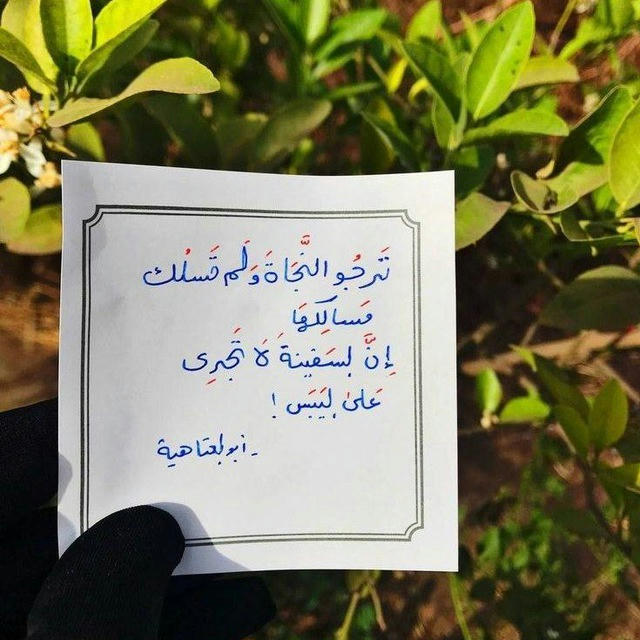 تَرجُو النَّجَاةَ وَلَم تَسلُك
مَسالِكهَا
إِنَّ لسَفينةَ لَا تَجرِى
عَلىٰ ليَبَس !
- أبو لعتاهية